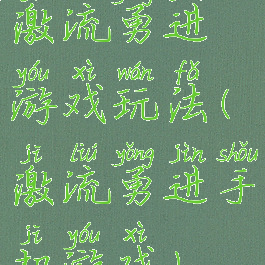 激流勇进
yóu xì wán fǎ
游戏玩法(
jī liú yǒng jìn shǒu
激流勇进手
jī yóu xì
机游戏)